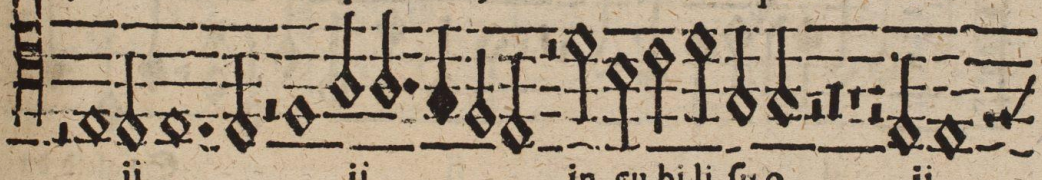 ij ij in cu bi li ſu o ij